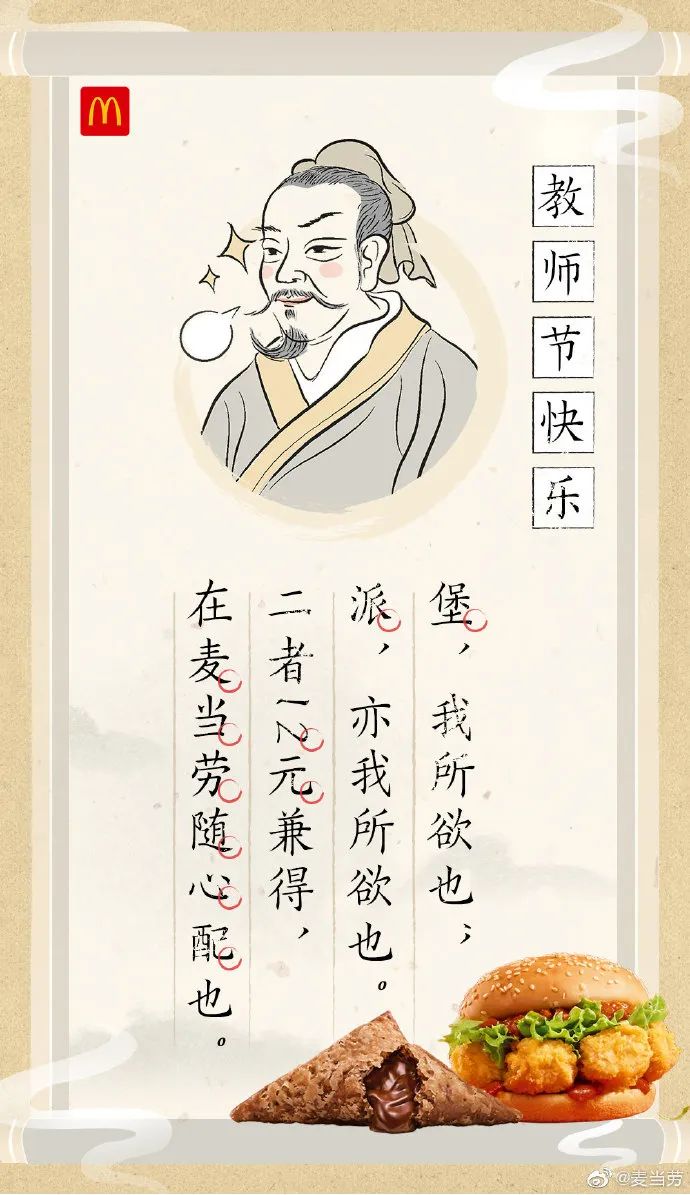 教师节快乐
堡，我所欲也；
派，亦我所欲也。
二者12元兼得，
在麦当劳随心配也。
@麦当劳